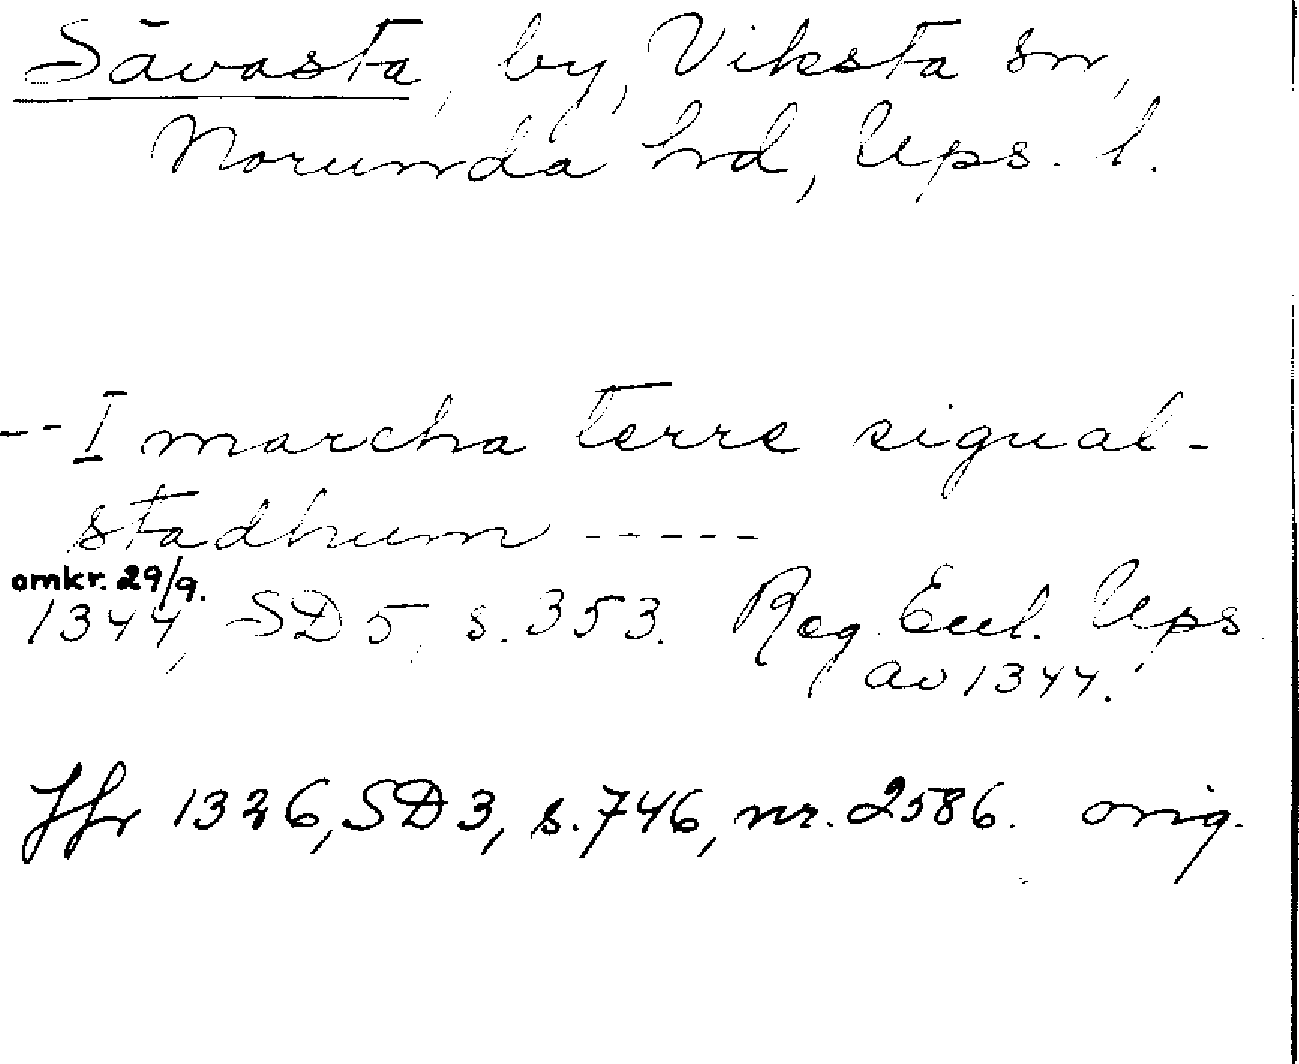 Sävasta, by, Viksta sn,
Norunda hd, Ups. l.
-- I marcha terre sigual-
stadhum -----
omkr. 29/9.
1344, SD 5, s. 353. Reg. Eccl. Ups
av 1344.
Jfr 1326, SD 3, s. 746, nr. 2586. orig.